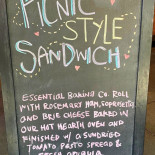 PICNIC
STYLE
SANDWICH
ESSENTIAL BAKING CO. ROLL
WITH ROSEMARY HAM, SOPPRESSATA
AND BRIE CHEESE BAKED IN
OUR HOT HEARTH OVEN AND
FINISHED W/ A SUNDRIED
TOMATO PESTO SPREAD &
FRESH ARUGULA